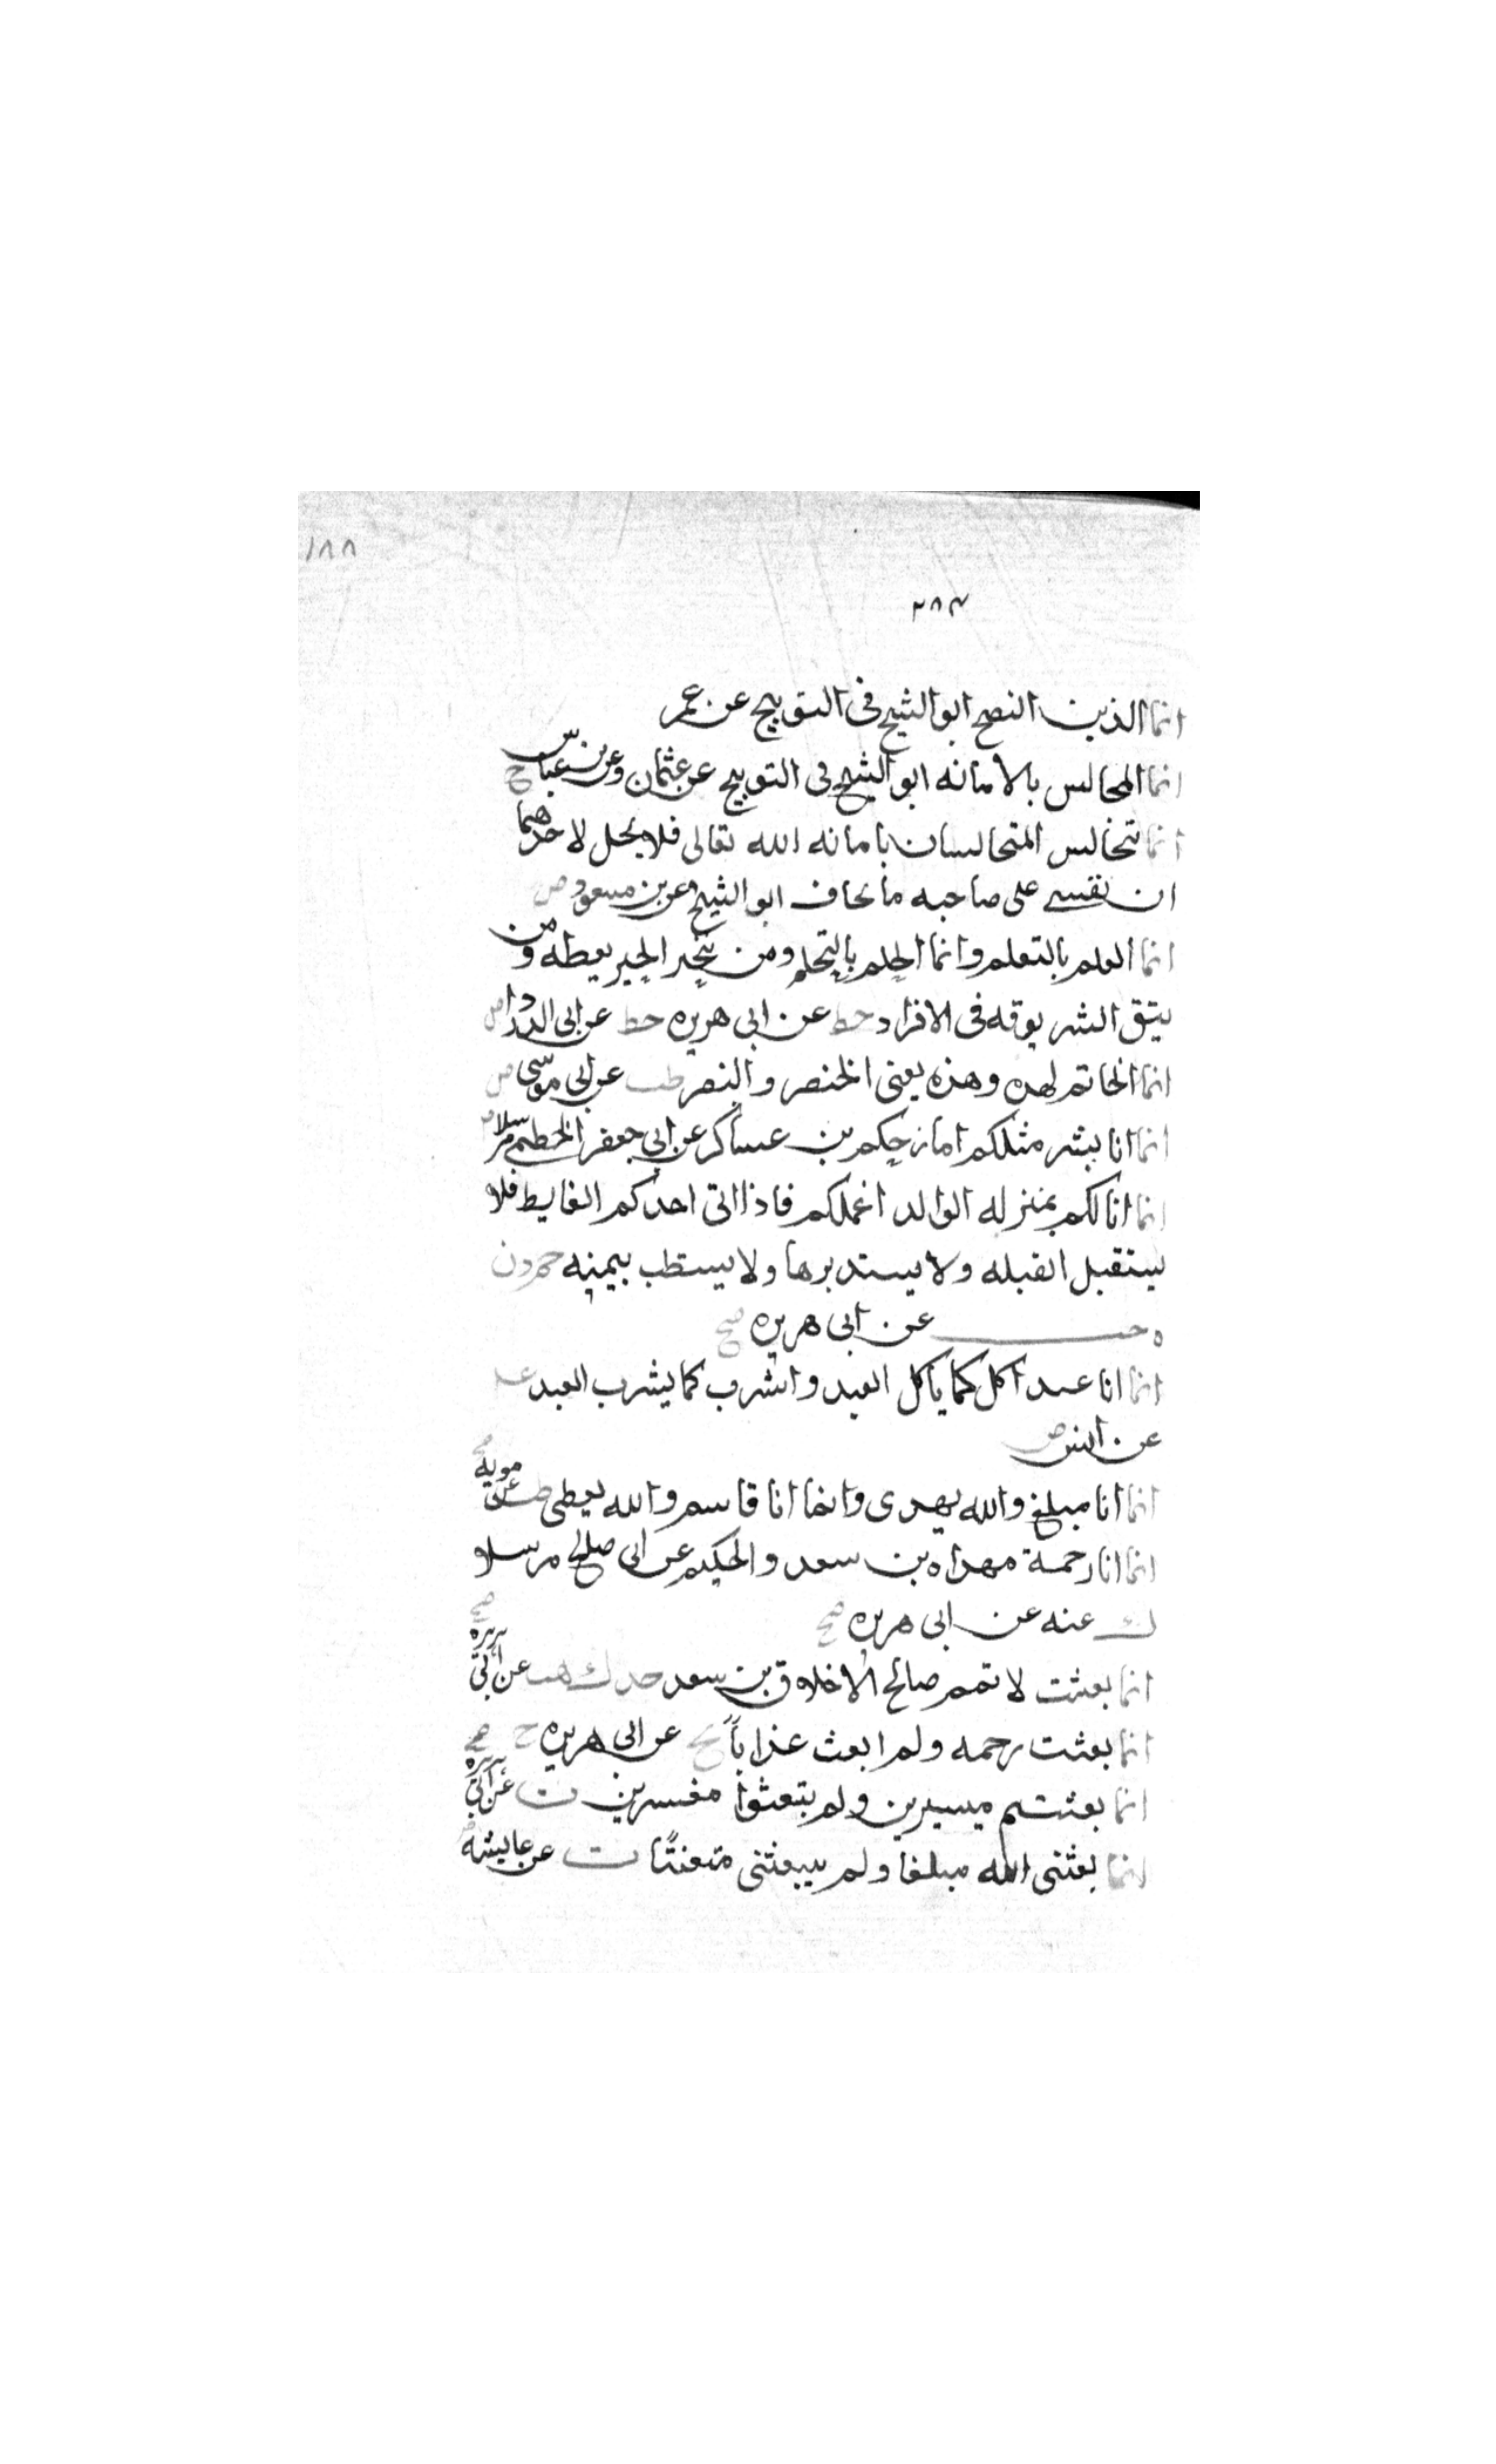 ١٨٨
٢٨٣
انما الدين النصح ابو الشيخ فى التوبيخ عن عمر
انما المجالس بالامانه ابو الشيخ فى التوبيخ عن عثمان وعن بن عباس ح
انما تتجالس المتجالسان بامانه الله تعالى فلا يحل لاحدهما
ان يفشى على صاحبه ما يخاف ابو الشيخ عن بن مسعود ض
انما العلم بالتعلم وانما الحلم بالتحلم ومن يتخير الخير يعطه ومن
يتق الشر يوقه فى الافراد خط عن ابى هريره خط عن ابى الدردا ض
انما الخاتم لهذه وهذه يعنى الخنصر والبنصر طب عن ابى موسى ض
انما انا بشر مثلكم امازحكم بن عساكر عن ابى جعفر الخطمى مرسلا
انما انا لكم بمنزله الوالد اعملكم فاذا اتى احدكم الغايط فلا
يستقبل القبله ولا يستدبرها ولا يستطب بيمينه حم د ن
ه حب عن ابى هريره صح
انما انا عبد آكل كما ياكل العبد واشرب كما يشرب العبد عد
عن انس ض
انما انا مبلغ والله يهدى وانما انا قاسم والله يعطى طب عن معويه صح
انما انا رحمة مهداه بن سعد والحكيم عن ابى صالح مرسلا
ك عنه عن ابى هريره صح
انما بعثت لاتمم صالح الاخلاق بن سعد خد ك هب عن ابى هريره صح
انما بعثت رحمه ولم ابعث عذاباً تخ عن ابى هريره ح
انما بعثتم ميسرين ولم تبعثوا معسرين ت عن ابى هريره صح
انما بعثنى الله مبلغا ولم يبعثنى متعنتًا ت عن عايشه